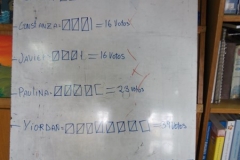 - CONSTANZA: = 16 Votos
- JAVIER: = 16 Votos
- PAULINA: = 23 votos
- YIORDAN: = 39 Votos